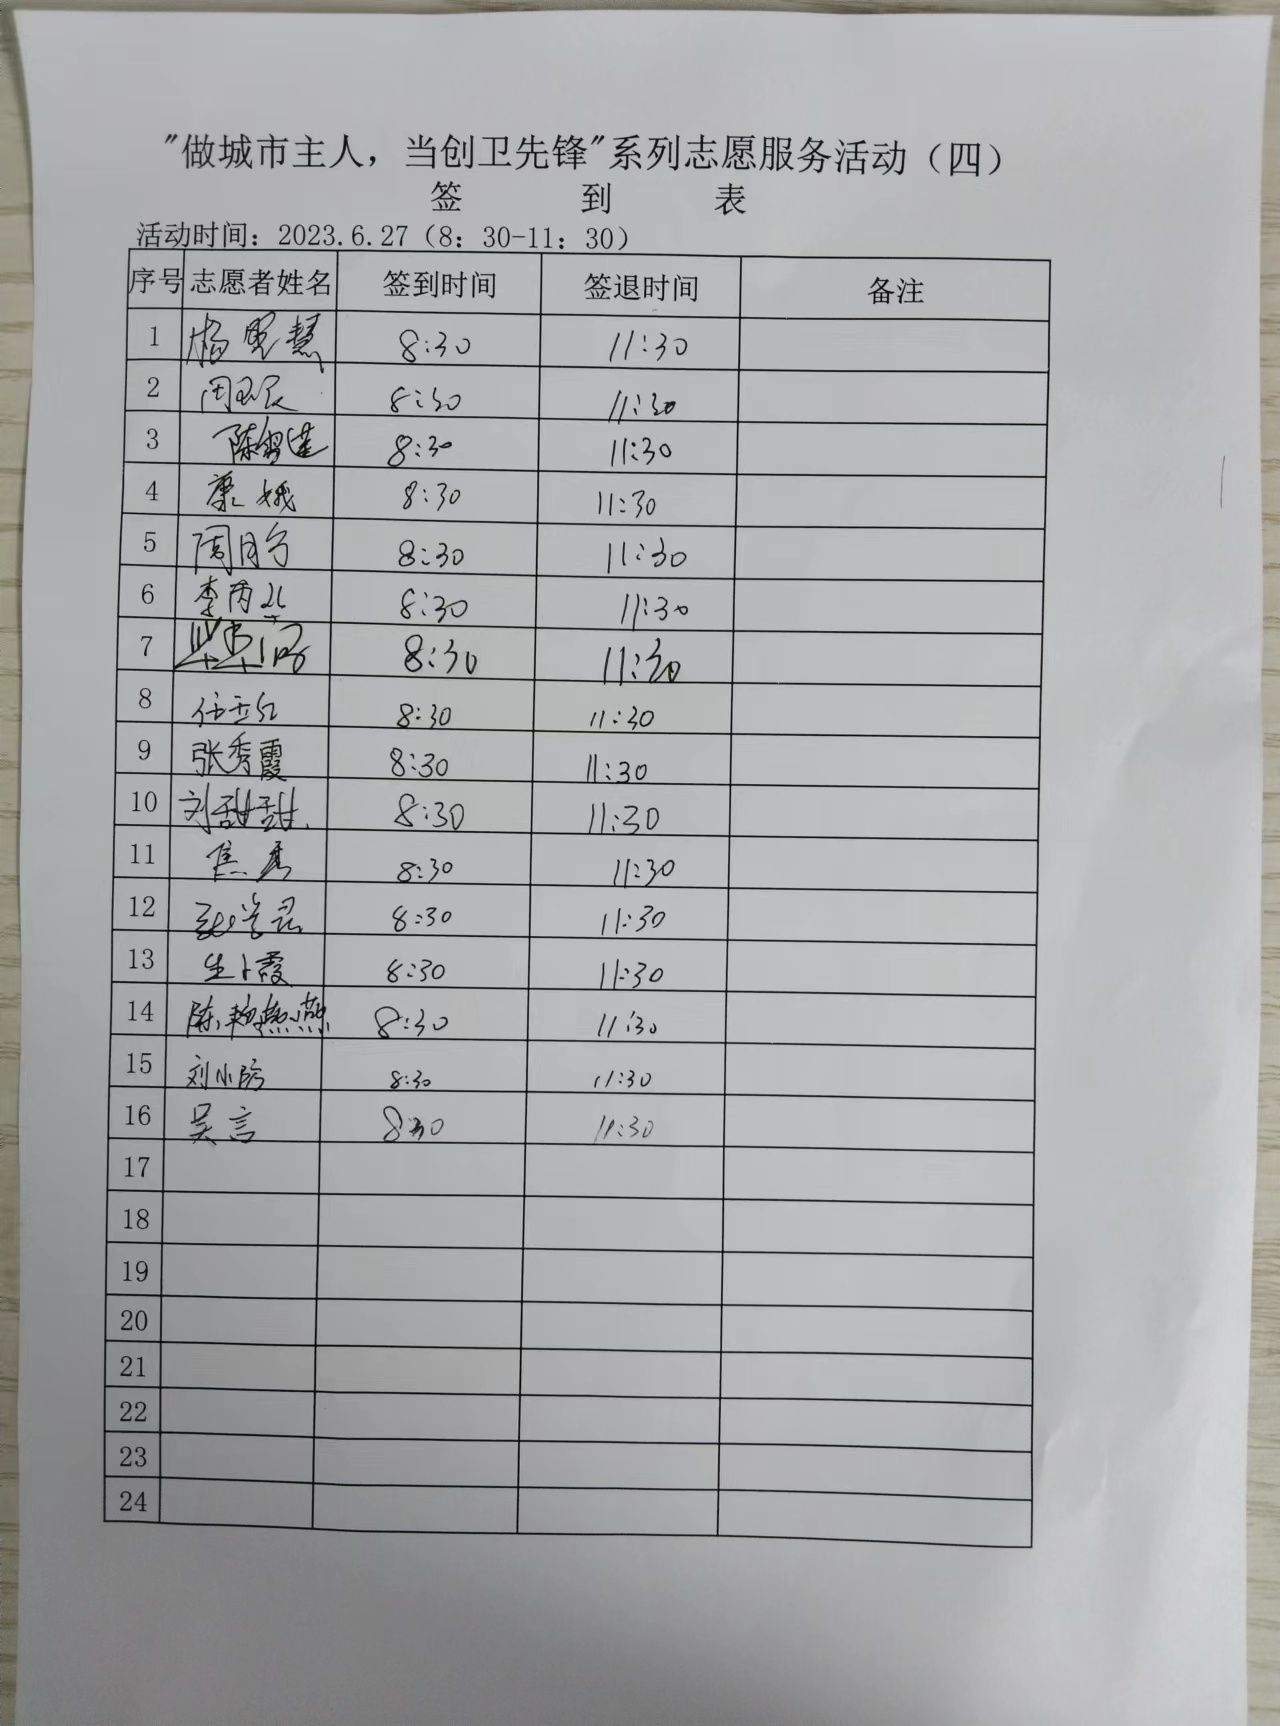 "做城市主人，当创卫先锋"系列志愿服务活动（四）
签 到 表
活动时间：2023.6.27（8：30-11：30）
序号 志愿者姓名 签到时间 签退时间 备注
1 杨 慧 8:30 11:30
2 周 8:30 11:30
3 陈 莲 8:30 11:30
4 康娥 8:30 11:30
5 周月 8:30 11:30
6 李丙 8:30 11:30
7 8:30 11:30
8 任 红 8:30 11:30
9 张秀霞 8:30 11:30
10 刘甜甜 8:30 11:30
11 焦秀 8:30 11:30
12 8:30 11:30
13 生小霞 8:30 11:30
14 陈艳燕 8:30 11:30
15 刘小 8:30 11:30
16 吴言 8:30 11:30
17
18
19
20
21
22
23
24